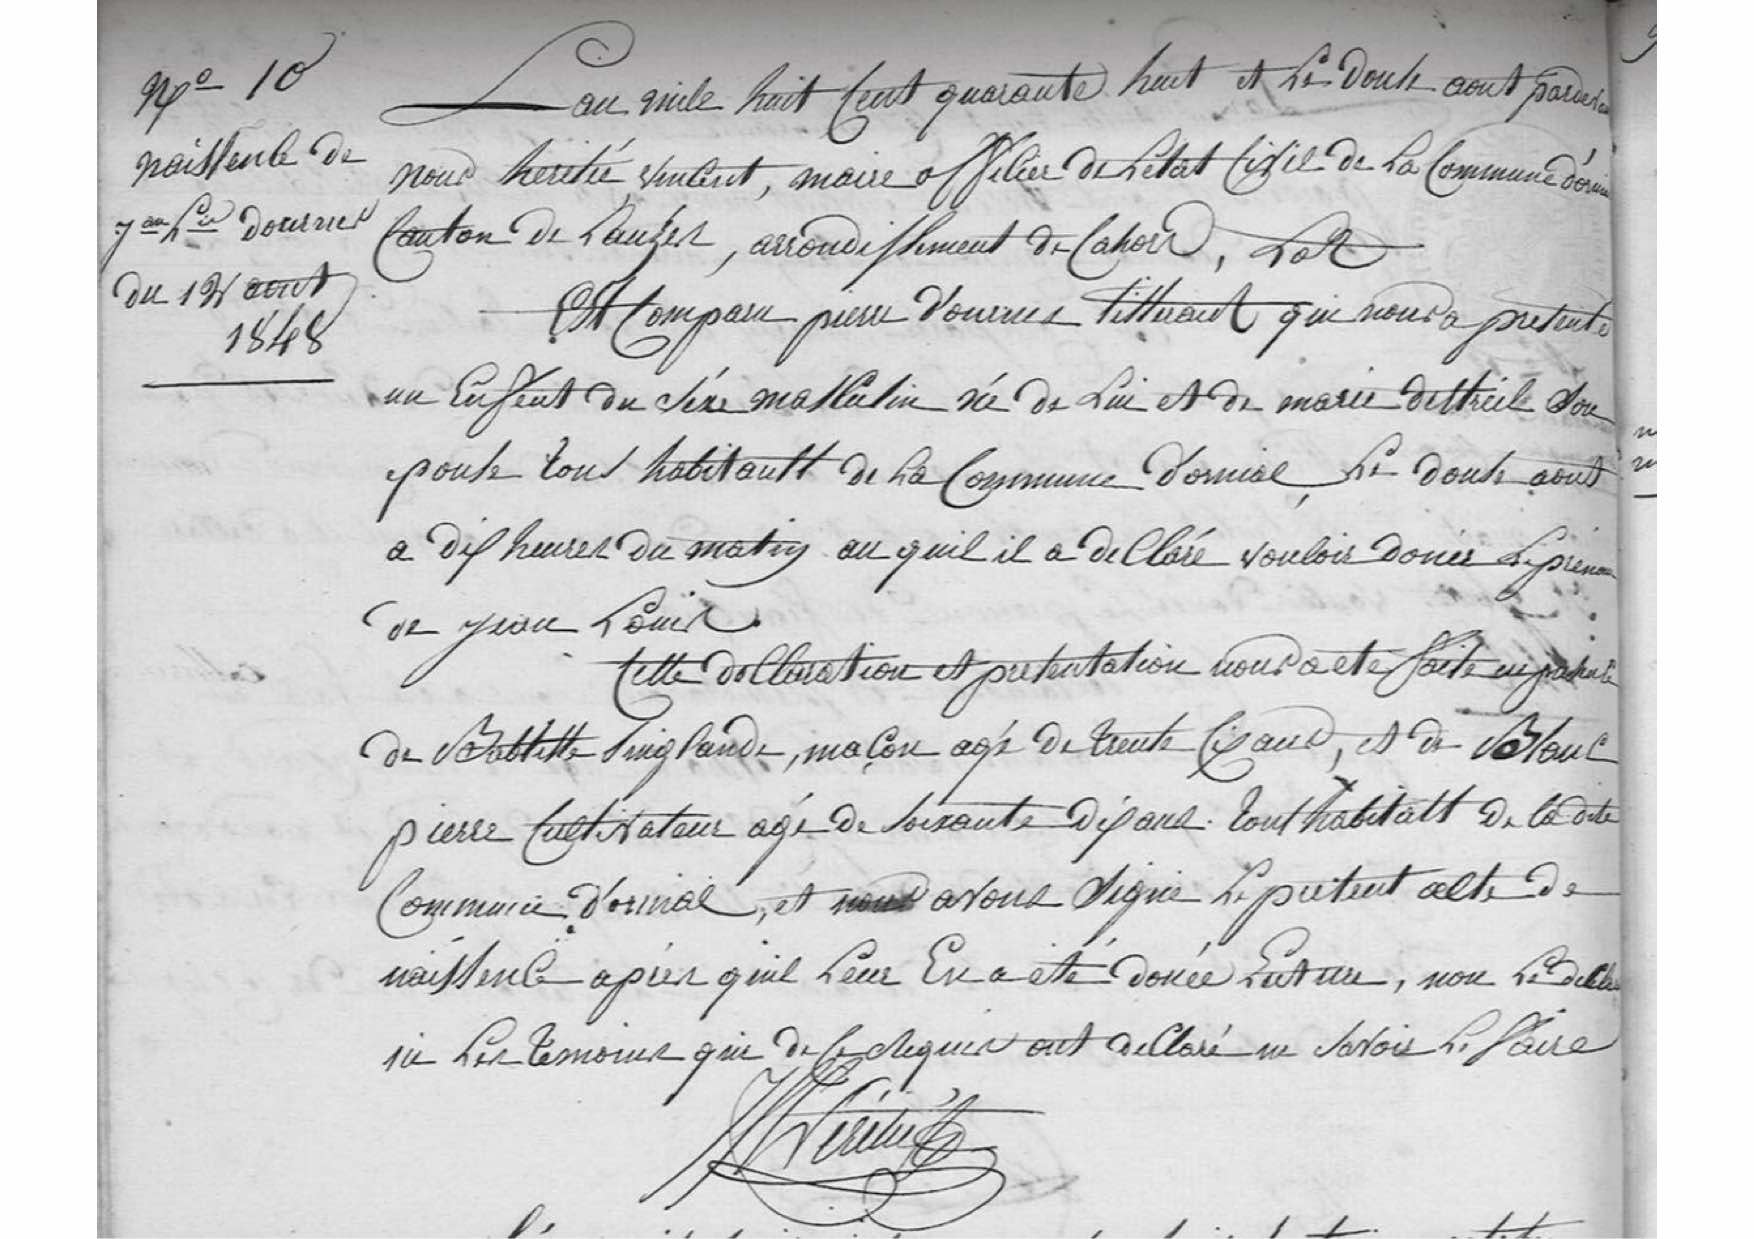 Nº 10
naissence de
jean Louis dournes
du 12 aout
1848
L'an mile huit Cent quarante huit et Le douse aout pardevan
nous heretié vincent, maire officier de Létat Civil de La Commune d'orni
Canton de Lauzes, arrondissement de Cahors, Lot
Est Comparu pierre dournes tisserant qui nous a presenté
un Enfent du séxe masculin né de Lui et de marie deltreil son
epouse tous habitants de La Commune d'orniac, Le douse aout
a dix heures du matin au quil il a declaré vouloir donér Le prénom
de jean Louis.
Cette declaration et presentation nous a été faite en presence
de Babtiste Singlande, maçon agé de trente six ans, et de Blanc
pierre Cultivateur agé de soixante dix ans. tous habitatt de la dite
Commune d'orniac, et nous avons signé Le present acte de
naissence aprés quil Leur En a été donée Lecture, non Le decla
ni Les temoins qui de ce requis ont declaré ne savoir Le faire